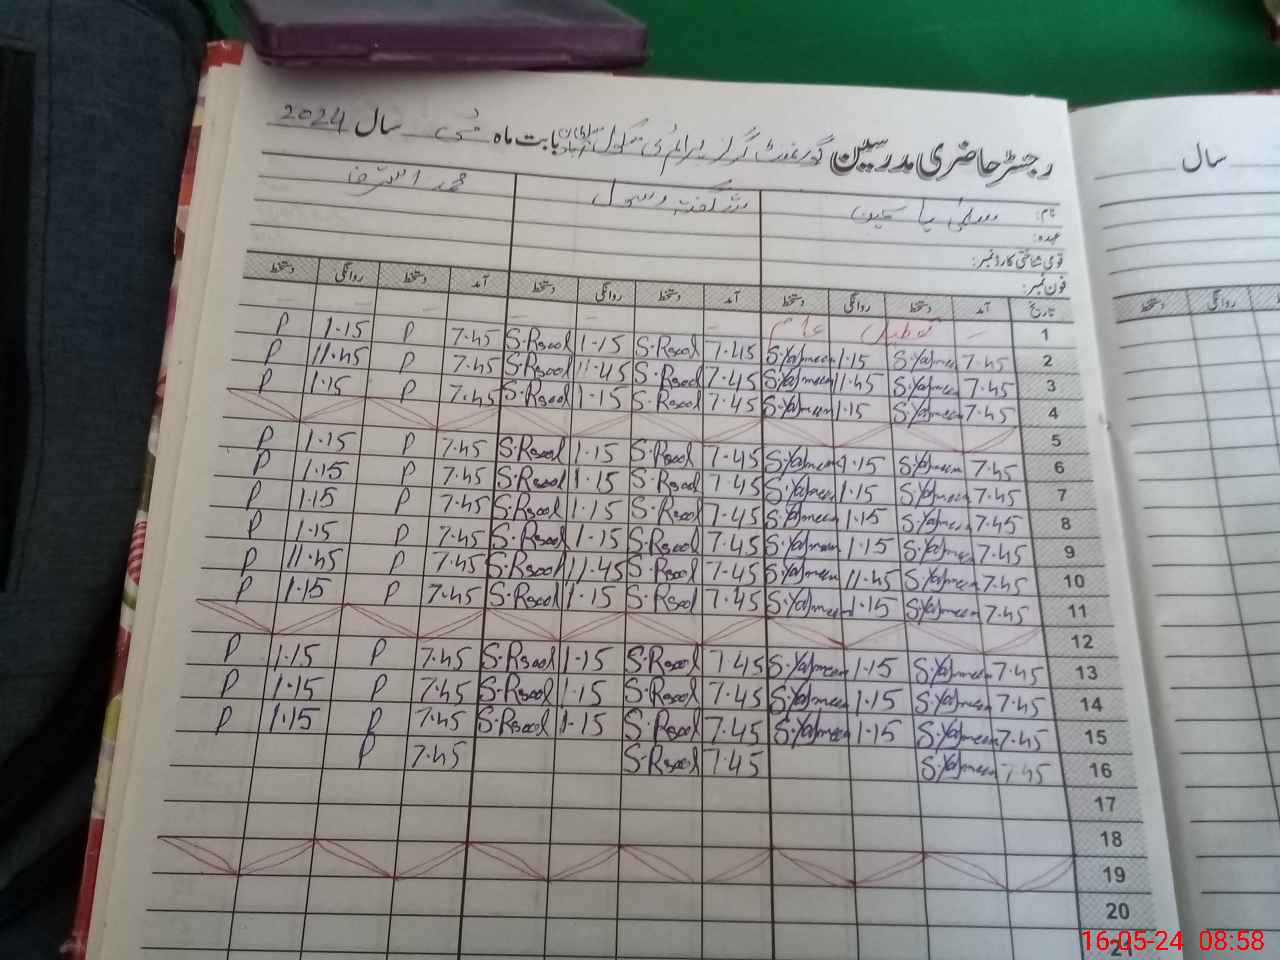 رجسٹر حاضری مدرسین گورنمنٹ گرلز پرائمری سکول سلطان آباد بابت ماہ مئی سال 2024
سال
نام: سلمیٰ یاسمین شگفتہ رسول محمد اشرف
عہدہ:
قومی شناختی کارڈ نمبر:
فون نمبر:
تاریخ آمد دستخط روانگی دستخط آمد دستخط روانگی دستخط آمد دستخط روانگی دستخط
دستخط روانگی
1 - تعطیل عام
2 7.45 S.Yasmeen 1.15 S.Yasmeen 7.45 S.Rsool 1.15 S.Rsool 7.45 P 1.15 P
3 7.45 S.Yasmeen 11.45 S.Yasmeen 7.45 S.Rsool 11.45 S.Rsool 7.45 P 11.45 P
4 7.45 S.Yasmeen 1.15 S.Yasmeen 7.45 S.Rsool 1.15 S.Rsool 7.45 P 1.15 P
5
6 7.45 S.Yasmeen 1.15 S.Yasmeen 7.45 S.Rsool 1.15 S.Rsool 7.45 P 1.15 P
7 7.45 S.Yasmeen 1.15 S.Yasmeen 7.45 S.Rsool 1.15 S.Rsool 7.45 P 1.15 P
8 7.45 S.Yasmeen 1.15 S.Yasmeen 7.45 S.Rsool 1.15 S.Rsool 7.45 P 1.15 P
9 7.45 S.Yasmeen 1.15 S.Yasmeen 7.45 S.Rsool 1.15 S.Rsool 7.45 P 1.15 P
10 7.45 S.Yasmeen 11.45 S.Yasmeen 7.45 S.Rsool 11.45 S.Rsool 7.45 P 11.45 P
11 7.45 S.Yasmeen 1.15 S.Yasmeen 7.45 S.Rsool 1.15 S.Rsool 7.45 P 1.15 P
12
13 7.45 S.Yasmeen 1.15 S.Yasmeen 7.45 S.Rsool 1.15 S.Rsool 7.45 P 1.15 P
14 7.45 S.Yasmeen 1.15 S.Yasmeen 7.45 S.Rsool 1.15 S.Rsool 7.45 P 1.15 P
15 7.45 S.Yasmeen 1.15 S.Yasmeen 7.45 S.Rsool 1.15 S.Rsool 7.45 P 1.15 P
16 7.45 S.Yasmeen 7.45 S.Rsool 7.45 P
17
18
19
20
21
16-05-24 08:58